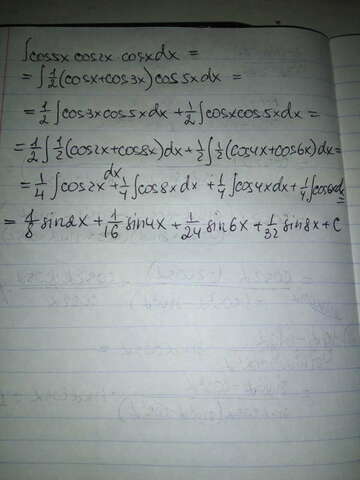 ∫cos5x cos2x cosxdx =
= ∫ 1/2 (cosx+cos3x) cos5x dx =
= 1/2 ∫cos3x cos5x dx + 1/2 ∫cosx cos5x dx =
= 1/2 ∫ 1/2 (cos2x+cos8x)dx + 1/2 ∫ 1/2 (cos4x+cos6x)dx =
= 1/4 ∫cos2x dx + 1/4 ∫cos8x dx + 1/4 ∫cos4x dx + 1/4 ∫cos6x dx =
= 1/8 sin2x + 1/16 sin4x + 1/24 sin6x + 1/32 sin8x + C